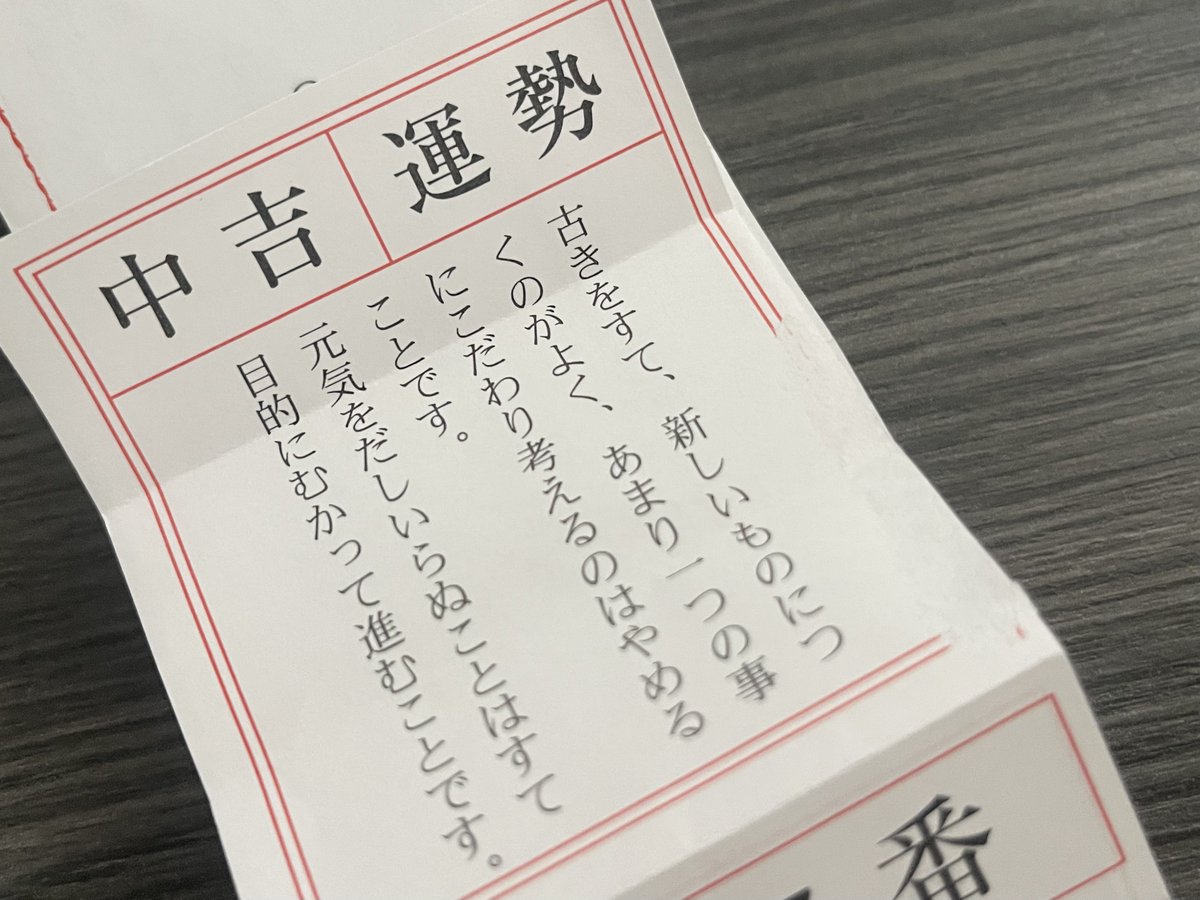 運勢
中吉
古きをすて、新しいものにつ
くのがよく、あまり一つの事
にこだわり考えるのはやめる
ことです。
元気をだしいらぬことはすて
目的にむかって進むことです。
番